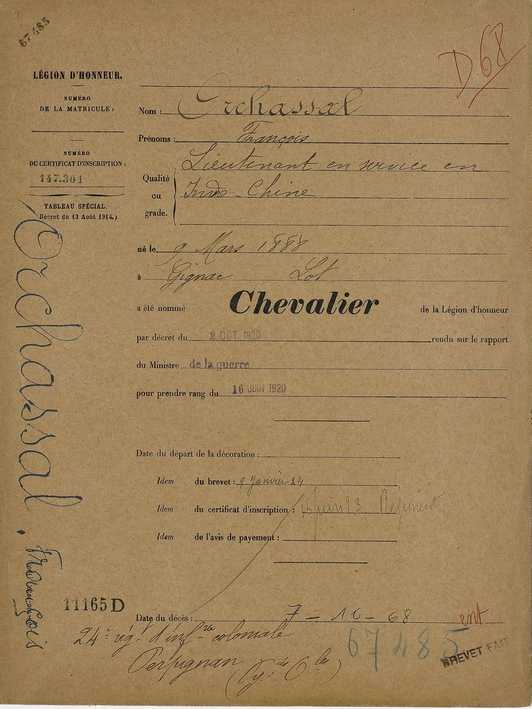 67485
D68
LÉGION D'HONNEUR.
NUMÉRO
DE LA MATRICULE :
NUMÉRO
DU CERTIFICAT D'INSCRIPTION :
147.301
TABLEAU SPÉCIAL.
(Décret du 13 Août 1914.)
Orchassal, François
11165 D
Nom : Orchassal
Prénoms : François
Qualité ou grade. Lieutenant en service en
Indo-Chine
né le 9 Mars 1888
à Gignac Lot
a été nommé Chevalier de la Légion d'honneur
par décret du 2 OCT 1920, rendu sur le rapport
du Ministre de la guerre
pour prendre rang du 16 JUIN 1920
Date du départ de la décoration :
Idem du brevet : 9 Janvier 24
Idem du certificat d'inscription : Régiment
Idem de l'avis de payement :
Date du décès : 7 - 10 - 68 ent
24e rég. d'infrie coloniale
67485
Perpignan (Py. Oles)
BREVET FAIT